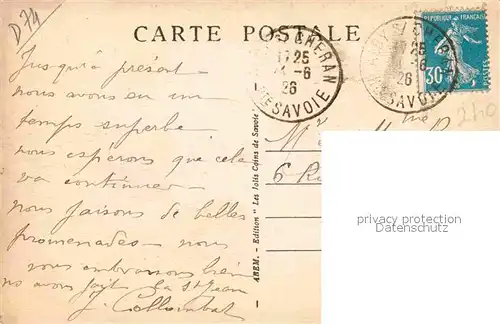 D74
CARTE POSTALE
Jusqu'à présent
nous avons eu un
temps superbe
nous espérons que cela
va continuer
nous faisons de belles
promenades - nous
vous embrassons bien
J. Colloimbat
AREM. - Edition "Les Jolis Coins de Savoie"
S/CHERAN
17 25
-6
26
Hte SAVOIE
S/CH
25
-6
26
SAVOIE
REPUBLIQUE FRANÇAISE
30c
POSTES
210
M
me
6 R
privacy protection
Datenschutz